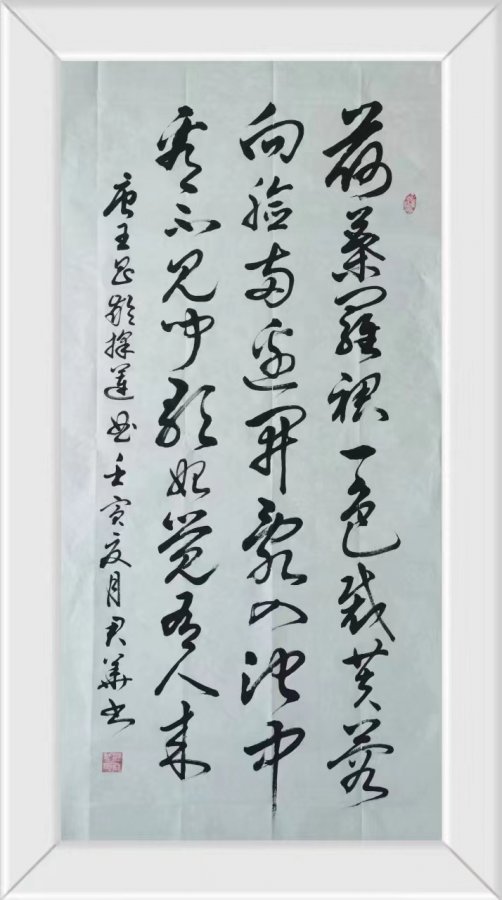 荷葉羅裙一色裁芙蓉
向臉兩邊開亂入池中
看不見聞歌始覺有人來
唐王昌齡採蓮曲壬寅夏月君華书